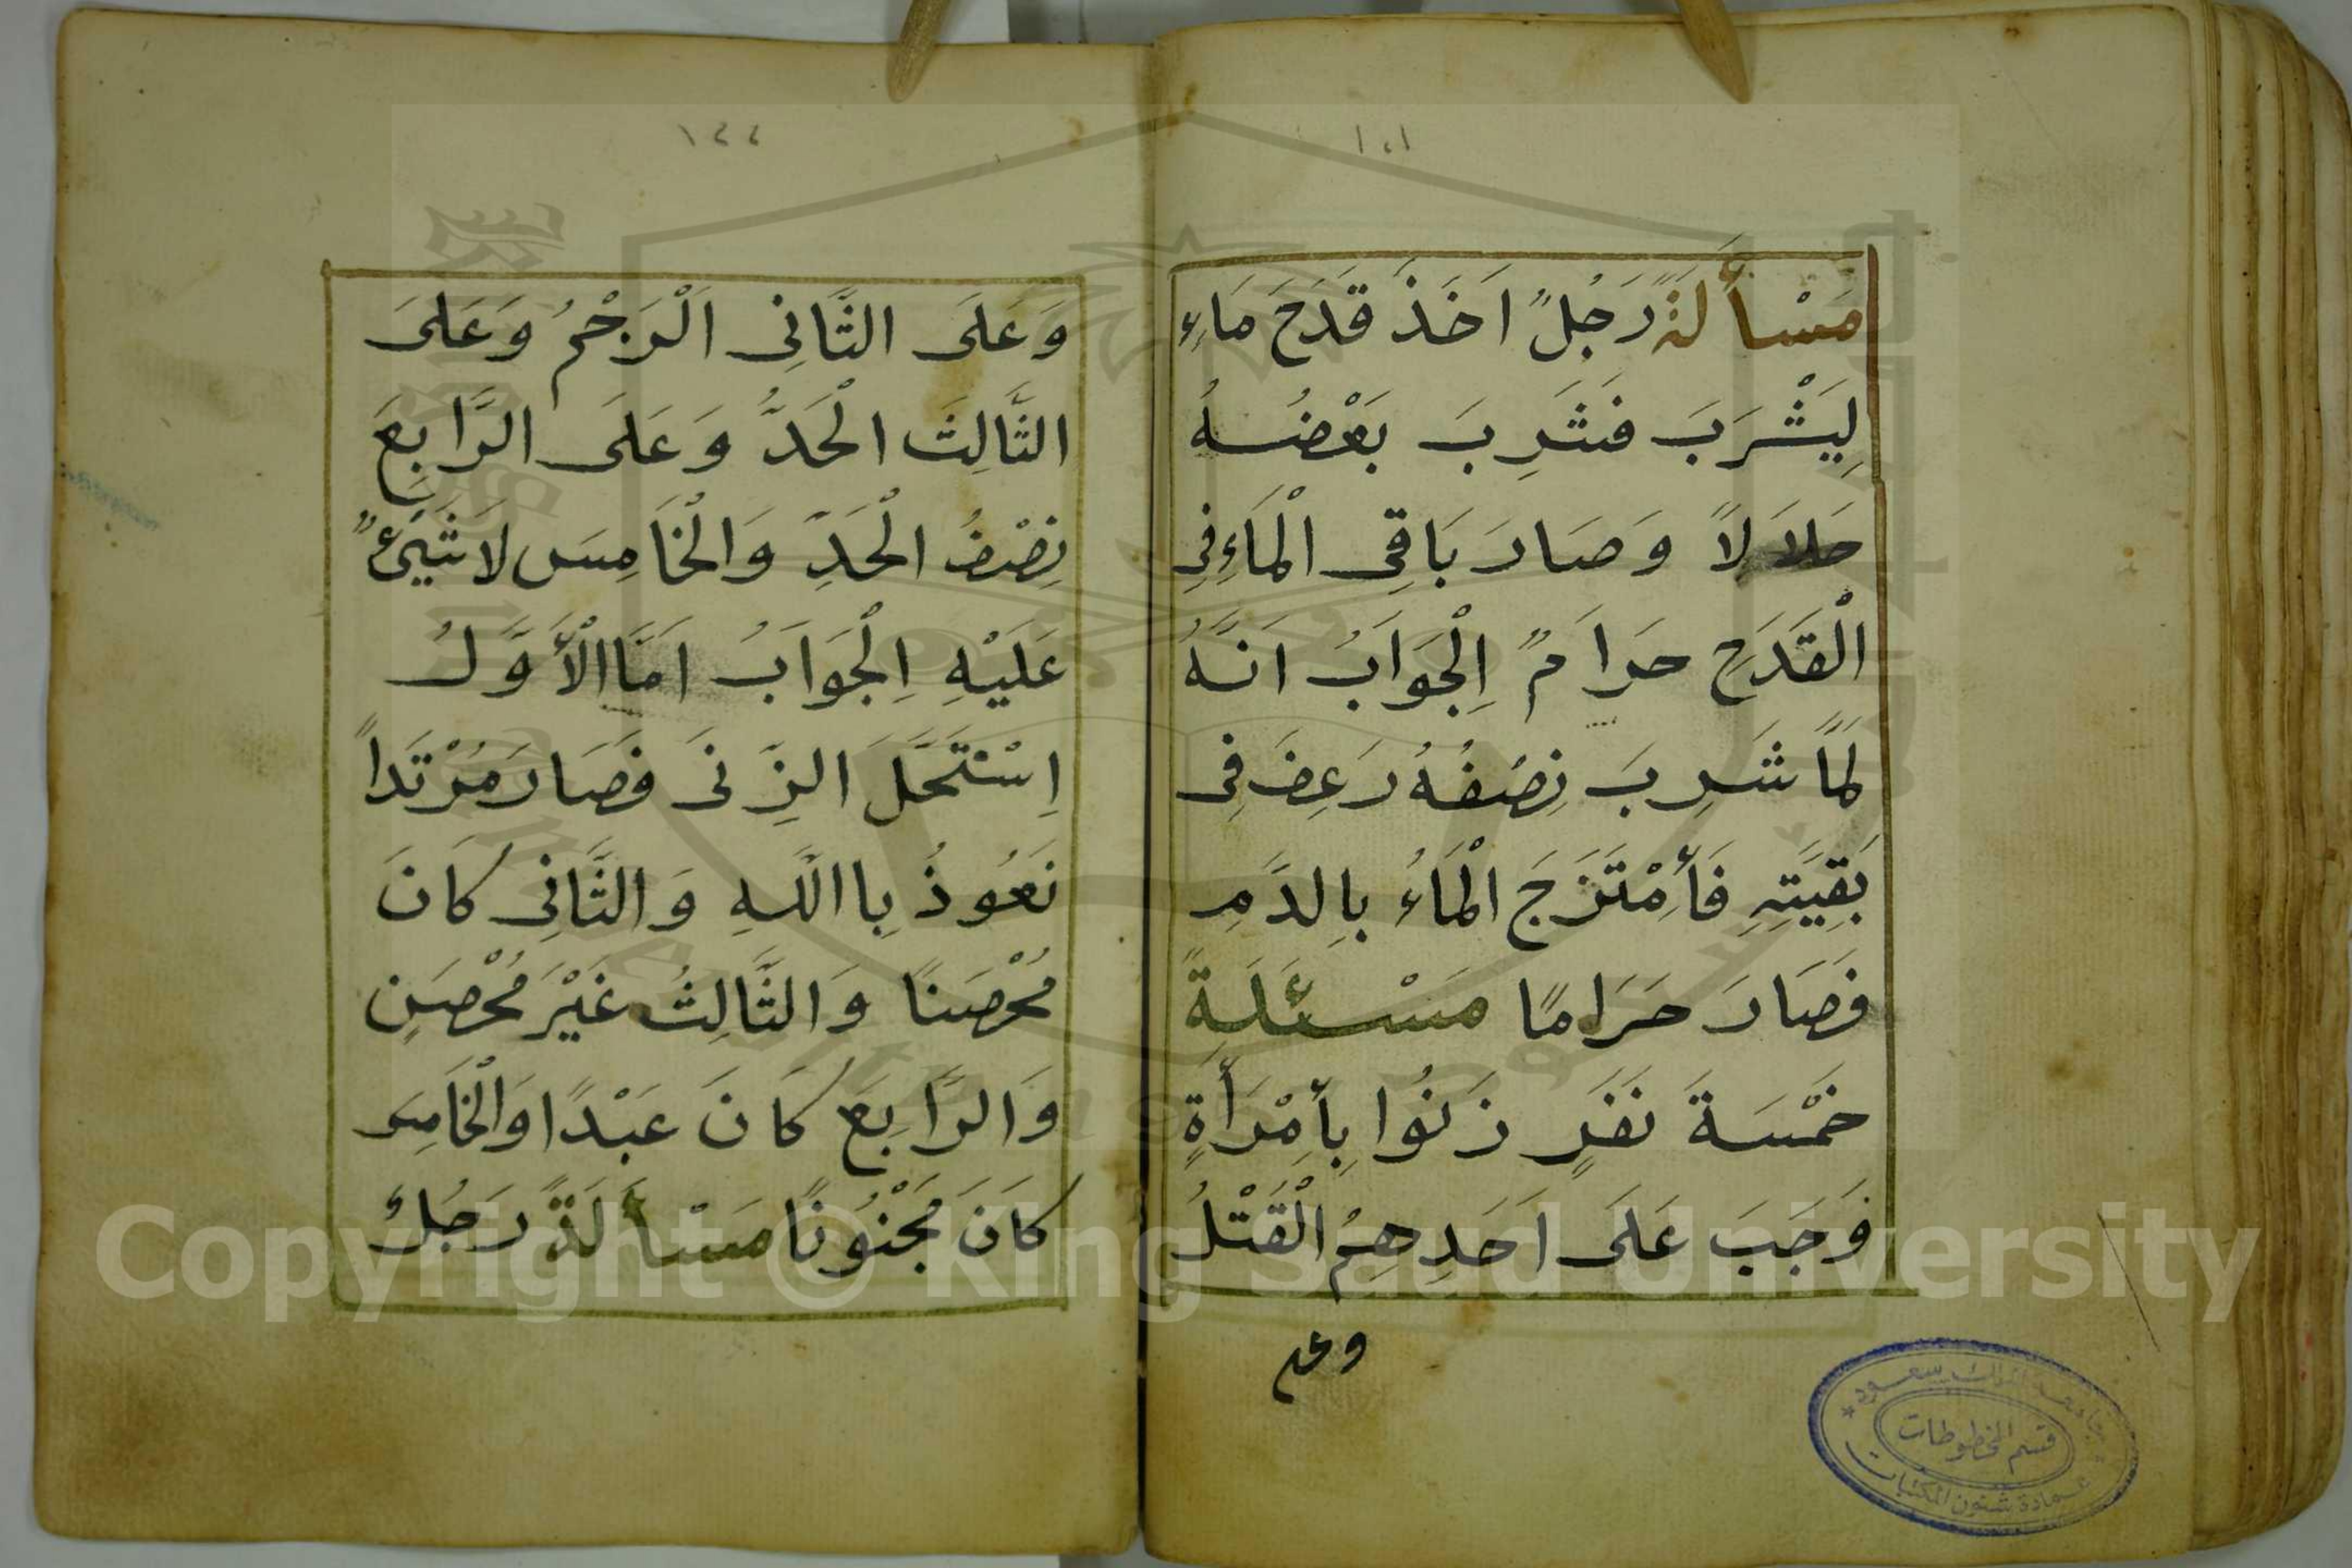 ١٠١
مَسْأَلَةً رَجُلٌ اَخَذَ قَدَحَ مَاءٍ
لِيَشْرَبَ فَشَرِبَ بَعْضُهُ
حَلَالًا وَصَارَ بَاقِى الْمَاءِ فِى
الْقَدَحِ حَرَامٌ اِلْجَوَابُ اَنَّهُ
لَمَّا شَرِبَ نِصْفُهُ رَعِفَ فِى
بَقِيَّتِهِ فَأِمْتَزَجَ الْمَاءُ بِالدَّمِ
فَصَارَ حَرَامًا مَسْئَلَةً
خَمْسَةَ نَفَرٍ زَنُوا بِأِمْرَأَةٍ
وَجَبَ عَلَى اَحَدِهِمُ الْقَتْلُ
وعلى
قسم المخطوطات
عمادة شئون المكتبات
١٢٢
وَعَلَى الثَّانِى اَلْرَجْمُ وَعَلَى
الثَّالِثَ الْحَدُّ وَعَلَى الرَّابِعَ
نِصْفُ الْحَدِّ وَالْخَامِسَ لَا شَيْئٌ
عَلَيْهِ اِلْجَوَابُ اَمَّا الْأَوَّلُ
اِسْتَحَلَّ الزِّنَى فَصَارَ مُرْتَدًا
نَعُوذُ بِااللهِ وَالثَّانِى كَانَ
مُحْصَنًا وَالثَّالِثُ غَيْرَ مُحْصَنٍ
وَالرَّابِعَ كَانَ عَبْدًا وَالْخَامِس
كَانَ مَجْنُونًا مَسْأَلَةً رَجُلٌ
Copyright © King Saud University